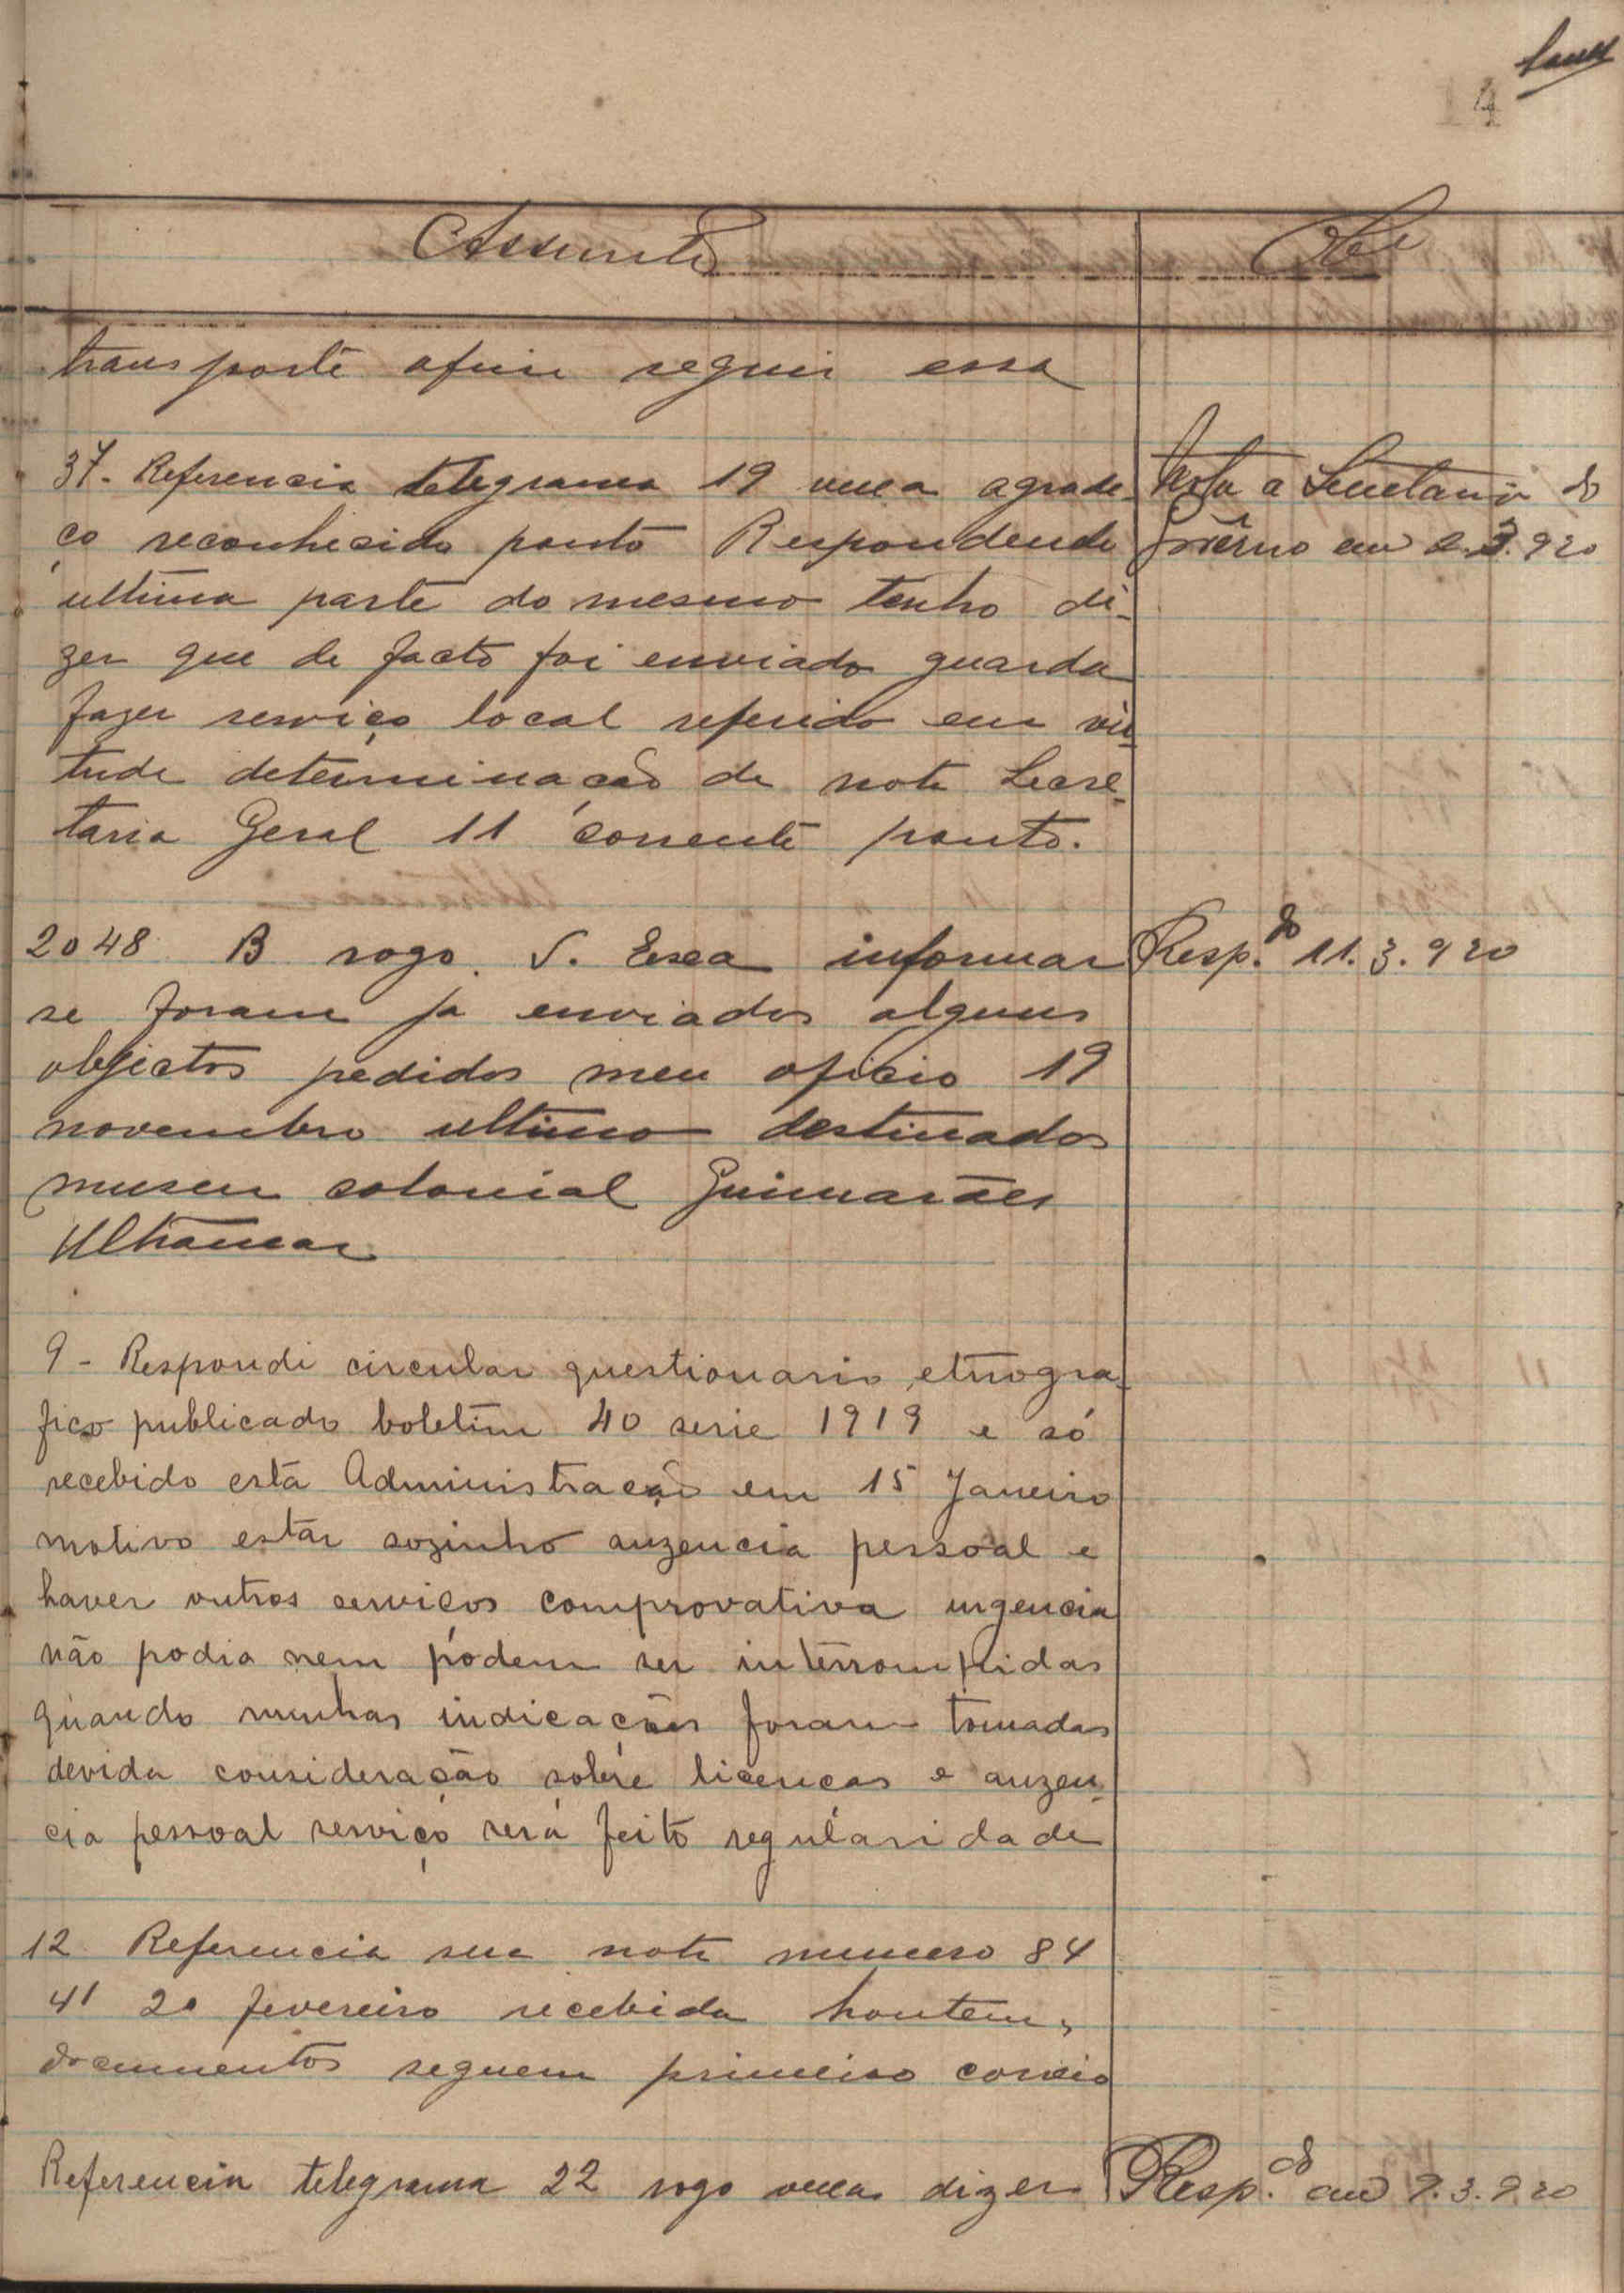 14
Assunto
Obs
transporte afim seguir essa
37. Referencia telegrama 19 vexa agrade-
ço reconhecido ponto Respondendo
ultima parte do mesmo tenho di-
zer que de facto foi enviado guarda
fazer serviço local referido em vir-
tude determinação de nota Secre-
taria Geral 11 corrente ponto.
Nota a Secretaria do
Govêrno em 2.3.920
2048 B rogo V. Exca informar
se foram ja enviados alguns
objectos pedidos meu oficio 19
novembro ultimo destinados
museu colonial Guimarães
Ultramar
Resp.do 11.3.920
9 - Respondi circular questionario etnogra-
fico publicado boletim 40 serie 1919 e só
recebido esta Administração em 15 Janeiro
motivo estar sozinho auzencia pessoal e
haver outros serviços comprovativa urgencia
não podia nem podem ser interrompidas
quando minhas indicações foram tomadas
devida consideração sobre licenças e auzen-
cia pessoal serviço será feito regularidade
12 Referencia sua nota numero 84
41 20 fevereiro recebida hontem,
documentos seguem primeiro correio
Referencia telegrama 22 rogo vexa dizer
Resp.do em 9.3.920